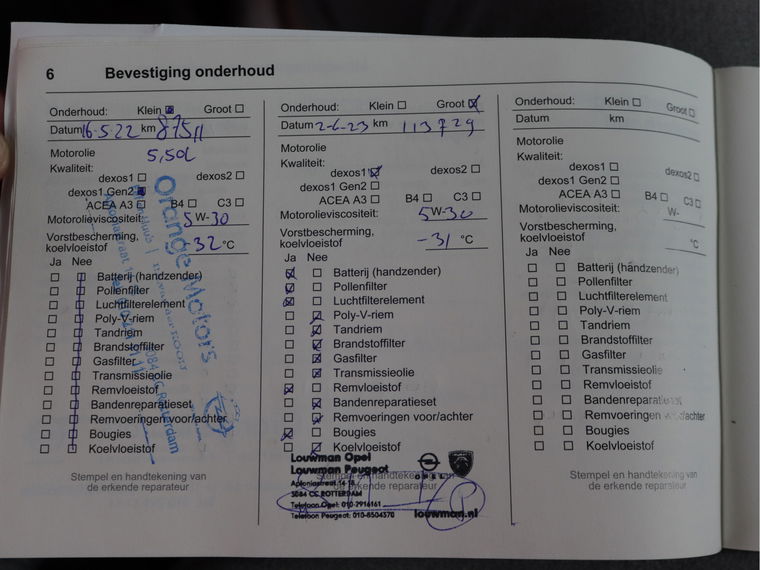 6 Bevestiging onderhoud
Onderhoud: Klein Groot
Datum 16-5-22 km 87511
Motorolie 5,50L
Kwaliteit:
dexos1 dexos2
dexos1 Gen2
ACEA A3 B4 C3
Motorolieviscositeit: 5 W-30
Vorstbescherming,
koelvloeistof -32 °C
Ja Nee
Batterij (handzender)
Pollenfilter
Luchtfilterelement
Poly-V-riem
Tandriem
Brandstoffilter
Gasfilter
Transmissieolie
Remvloeistof
Bandenreparatieset
Remvoeringen voor/achter
Bougies
Koelvloeistof
Orange Motors
Rotterdam
Stempel en handtekening van
de erkende reparateur
Onderhoud: Klein Groot
Datum 2-6-23 km 113729
Motorolie
Kwaliteit:
dexos1 dexos2
dexos1 Gen2
ACEA A3 B4 C3
Motorolieviscositeit: 5 W-30
Vorstbescherming,
koelvloeistof -31 °C
Ja Nee
Batterij (handzender)
Pollenfilter
Luchtfilterelement
Poly-V-riem
Tandriem
Brandstoffilter
Gasfilter
Transmissieolie
Remvloeistof
Bandenreparatieset
Remvoeringen voor/achter
Bougies
Koelvloeistof
Louwman Opel
Louwman Peugeot
Stempel en handtekening van
de erkende reparateur
3084 CC ROTTERDAM
Telefoon Opel: 010-2916161
Telefoon Peugeot: 010-8504370
OPEL
louwman.nl
Onderhoud: Klein Groot
Datum km
Motorolie
Kwaliteit:
dexos1 dexos2
dexos1 Gen2
ACEA A3 B4 C3
Motorolieviscositeit: W-
Vorstbescherming,
koelvloeistof °C
Ja Nee
Batterij (handzender)
Pollenfilter
Luchtfilterelement
Poly-V-riem
Tandriem
Brandstoffilter
Gasfilter
Transmissieolie
Remvloeistof
Bandenreparatieset
Remvoeringen voor/achter
Bougies
Koelvloeistof
Stempel en handtekening van
de erkende reparateur